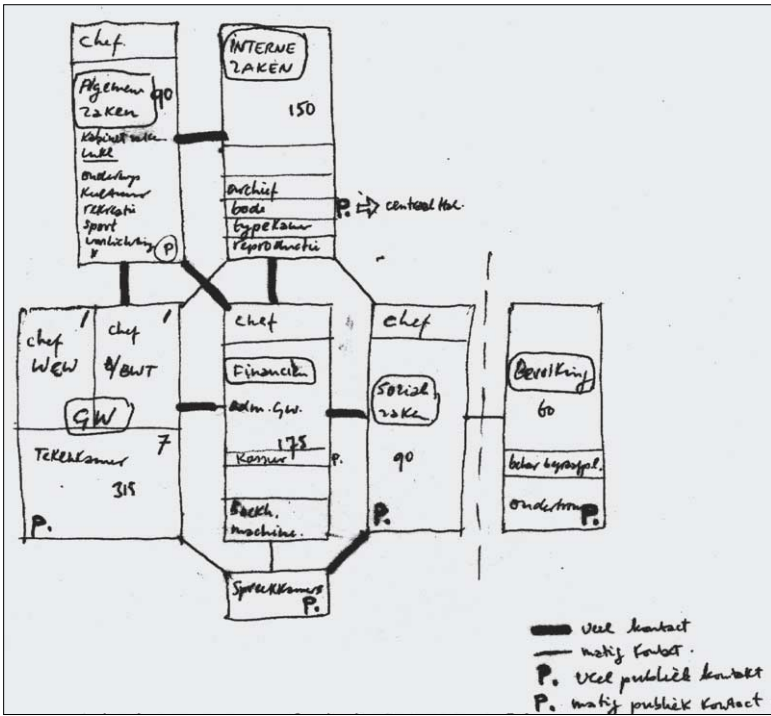 chef.
Algemen
zaken
90
Kabinetzaken
onderwys
Kultuur
rekreatie
sport
voorlichting
P
INTERNE
ZAKEN
150
archief
bode
P. ⇨ centrale hal.
typekamer
reproductie
chef
W&W
1
chef
B/BWT
1
GW
Tekenkamer
7
315
P.
chef
Financiën
adm. GW.
175
Kassier
P.
Boekh.
machine.
chef
Sociale
zaken
90
P.
Bevolking
60
P.
Spreekkamers
P.
veel kontact
matig kontact.
P. veel publiek kontakt
P. matig publiek kontact